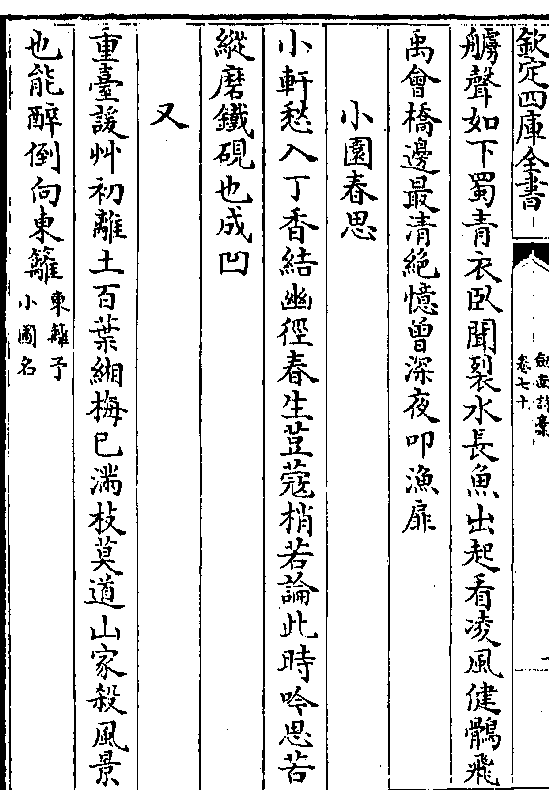 欽定四庫全書
劍南詩藁
卷七十
艣聲如下蜀青衣臥聞裂水長魚出起看凌風健鶻飛
禹會橋邊最清絶憶曾深夜叩漁扉
小園春思
小軒愁入丁香結幽徑春生荳蔻梢若論此時吟思苦
縱磨鐵硯也成凹
又
重臺諼艸初離土百葉緗梅已滿枝莫道山家殺風景
也能醉倒向東籬
東籬予
小圃名